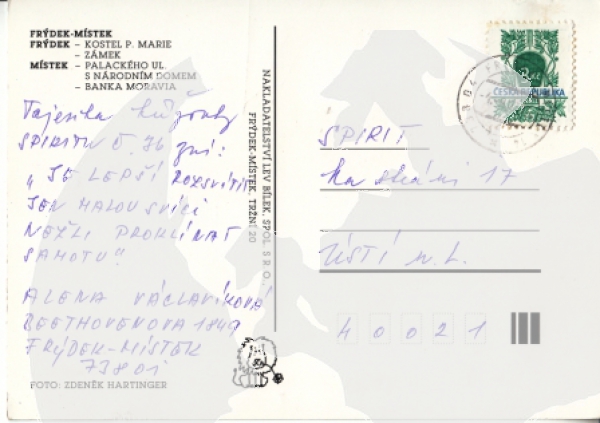 FRÝDEK-MÍSTEK
FRÝDEK – KOSTEL P. MARIE
– ZÁMEK
MÍSTEK – PALACKÉHO UL.
S NÁRODNÍM DOMEM
– BANKA MORAVIA
Tajenka křížovky
SPIRITU č. 76 zní:
„JE LEPŠÍ ROZSVÍTIT
JEN MALOU SVÍCI
NEŽLI PROKLÍNAT
SAMOTU"
ALENA VÁCLAVÍKOVÁ
BEETHOVENOVA 1849
FRÝDEK-MÍSTEK
73801
FOTO: ZDENĚK HARTINGER
NAKLADATELSTVÍ LEV BÍLEK, SPOL. S R.O.,
FRÝDEK-MÍSTEK, TRŽNÍ 20
ČESKÁ REPUBLIKA
SPIRIT
Na skání 17
ÚSTÍ n. L.
40021